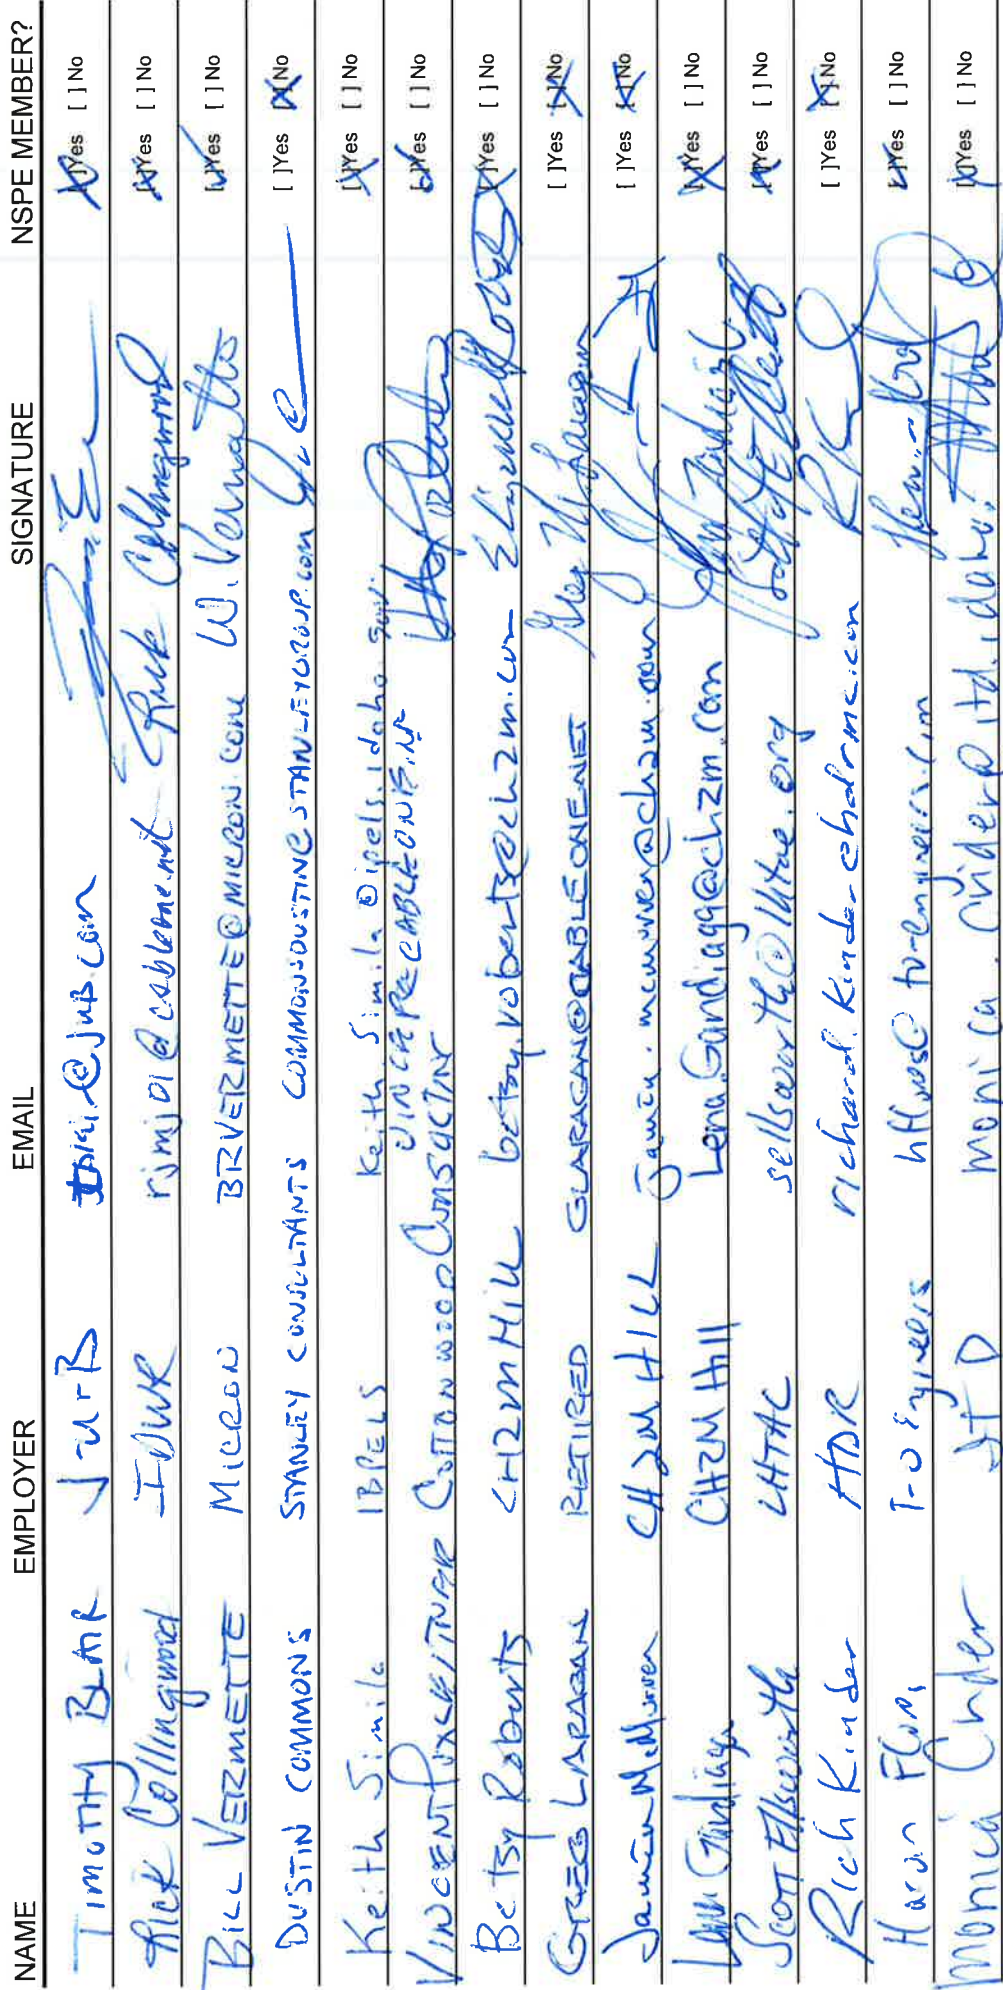 NAME EMPLOYER EMAIL SIGNATURE NSPE MEMBER?
TIMOTHY BLAIR J-U-B @jub.com [ ]Yes [ ] No
Rick Collingwood IDWR rjmjd1@cableone.net Rick Collingwood [ ]Yes [ ] No
BILL VERMETTE MICRON BRVERMETTE@MICRON.COM W. Vermette [ ]Yes [ ] No
DUSTIN COMMONS STANLEY CONSULTANTS COMMONSDUSTIN@STANLEYGROUP.com [ ]Yes [ ] No
Keith Simila IBPELS Keith.Simila@ipels.idaho.gov [ ]Yes [ ] No
VINCENT COTTONWOOD CONSULTING [ ]Yes [ ] No
Betsy Roberts CH2M Hill betsy.roberts@ch2m.com [ ]Yes [ ] No
GREGG LARAGAN RETIRED GLARAGAN@CABLEONE.NET [ ]Yes [ ] No
CH2M HILL [ ]Yes [ ] No
Lena Gandiaga CH2M Hill Lena.Gandiaga@ch2m.com [ ]Yes [ ] No
Scott Ellsworth LHTAC sellsworth@lhtac.org [ ]Yes [ ] No
Rich Kinder HDR richard.kinder@hdrinc.com [ ]Yes [ ] No
T-O Engineers @to-engineers.com [ ]Yes [ ] No
Monica Crider ITD monica.crider@itd.idaho. [ ]Yes [ ] No